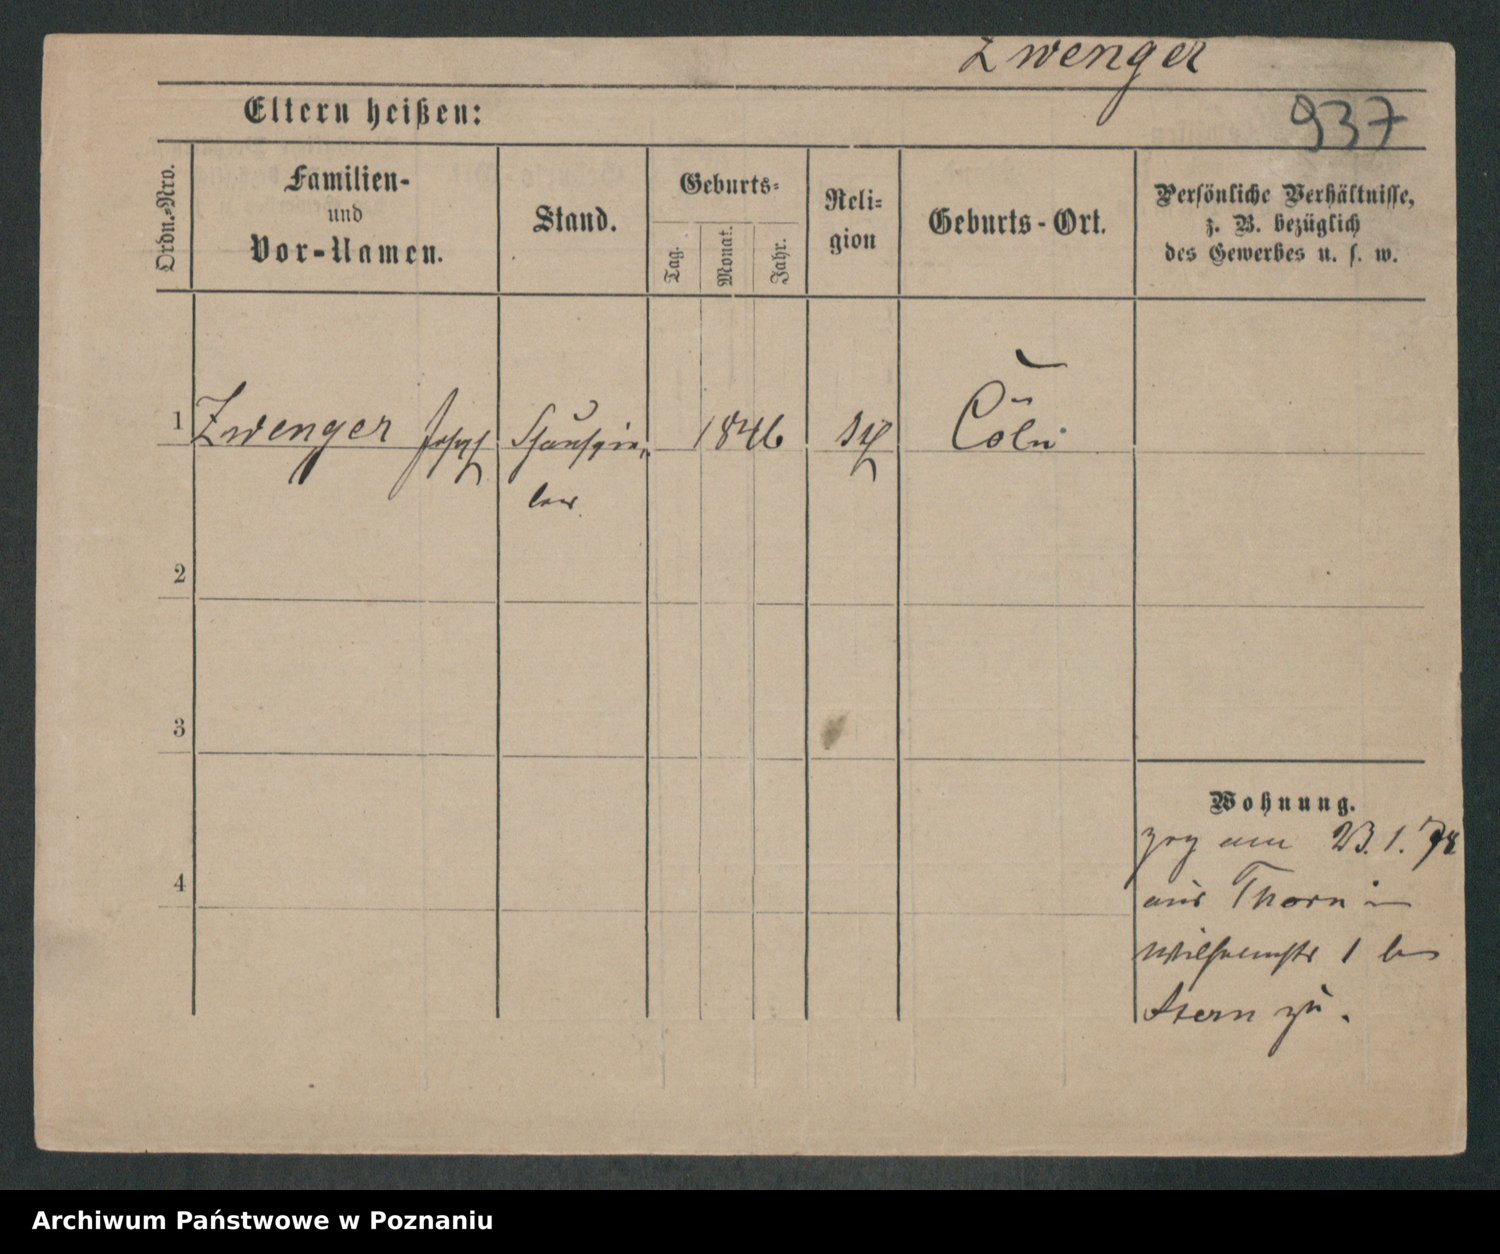 Zwenger
937
Eltern heißen:
Ordn.-Nro.
Familien-
und
Vor-Namen.
Stand.
Geburts-
Tag.
Monat.
Jahr.
Reli-
gion
Geburts-Ort.
Persönliche Verhältnisse,
z. B. bezüglich
des Gewerbes u. s. w.
1 Zwenger Joseph Schauspie- 1846 Cöln
ler
2
3
4
Wohnung.
zog am 23.1.78
aus Thorn in
Wilhelmstr 1 bei
Stern zu.
Archiwum Państwowe w Poznaniu